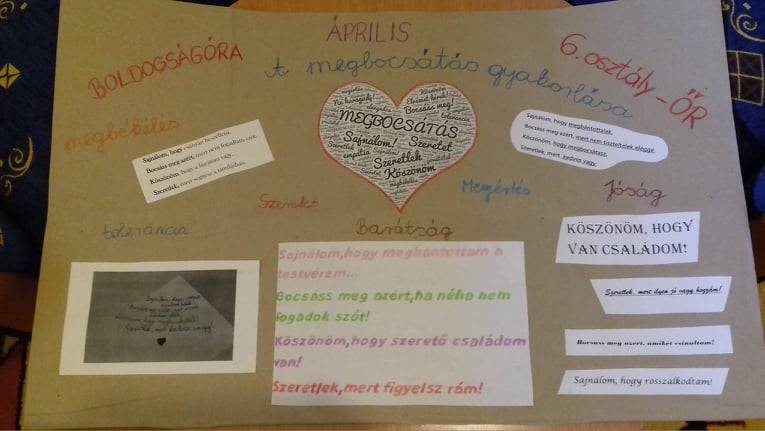 BOLDOGSÁGÓRA
ÁPRILIS
A megbocsátás gyakorlása
6. osztály - ŐR
megbékélés
Sajnálom, hogy csúnyán beszéltem.
Bocsáss meg azért, mert nem fogadtam szót.
Köszönöm, hogy a barátom vagy.
Szeretlek, mert segítesz a tanulásban.
Ne haragudj!
Köszönöm
Elnézést kérek!
Bocsáss meg!
MEGBOCSÁTÁS
Sajnálom!
Szeretet
empátia
Szeretlek
Köszönöm
Sajnálom, hogy megbántottalak.
Bocsáss meg azért, mert nem tiszteltelek eléggé.
Köszönöm, hogy megbocsátasz.
Szeretlek, mert kedves vagy.
Szeretet
Megértés
Jóság
tolerancia
Barátság
Sajnálom,hogy megbántottam a
testvérem...
Bocsáss meg azért,ha néha nem
fogadok szót!
Köszönöm,hogy szerető családom
van!
Szeretlek,mert figyelsz rám!
KÖSZÖNÖM, HOGY
VAN CSALÁDOM!
Szeretlek, mert ilyen jó vagy hozzám!
Bocsass meg azert, amiket csinaltam!
Sajnálom, hogy rosszalkodtam!